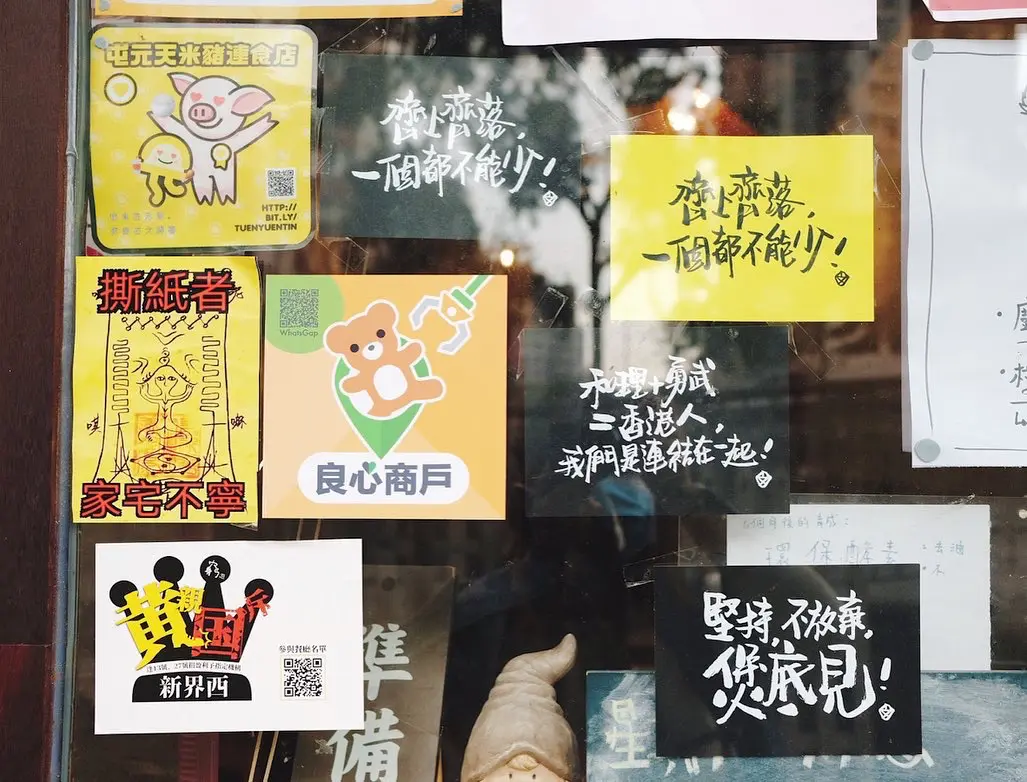 屯元天米豬連食店
HTTP://
BIT.LY/
TUENYUENTIN
齊上齊落,
一個都不能少!
齊上齊落,
一個都不能少!
撕紙者
家宅不寧
WhatsGap
良心商戶
和理+勇武
=香港人,
我們是連結在一起!
環保酵素
黃
親
国
斥
新界西
參與餐廳名單
堅持,不放棄,
煲底見!
準
備